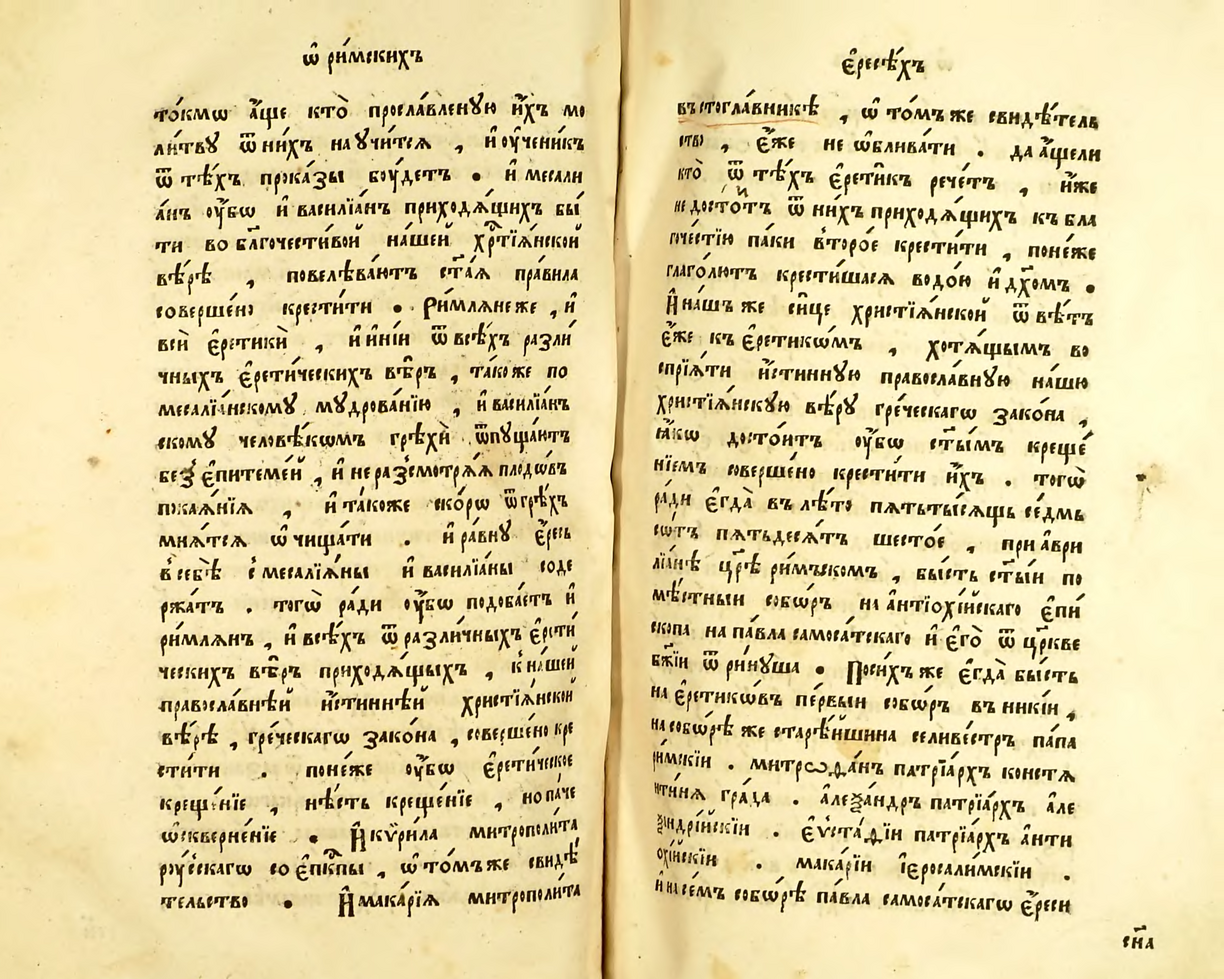 ѿ ри́мскихъ
то́кмѡ а҆́ще кто̀ просла́вленꙋю и҆́хъ мо
ли́твꙋ ѿ ни́хъ наꙋчи́тсѧ , и҆ оу҆чени́къ
ѿ тѣ́хъ прока́зы боу́детъ . и҆ месали
а́нъ оу҆́бѡ и҆ василїа́нъ приходѧ́щихъ бы́
ти во бл҃гочести́вой на́шей хр҃тїѧ́нской
вѣ́рѣ , повелѣва́ютъ ст҃а́ѧ пра́вила
соверше́но крести́ти . Ри́млѧне же , и҆
всѝ є҆ретикѝ , и҆ и҆ні́и ѿ всѣ́хъ разли́
чныхъ є҆рети́ческихъ вѣ́ръ , та́коже по
месалїа́нскомꙋ мꙋдрова́нїю , и҆ василїа́нъ
скомꙋ человѣ́кѡмъ грѣхѝ ѿпꙋща́ютъ
без̾ є҆питеме́й , и҆ не раз̾смотрѧ́ѧ плодѡ́въ
покаѧ́нїѧ , и҆ та́коже ско́рѡ ѿ грѣ́хъ
мнѧ́тсѧ ѡ҆чища́ти . и҆ ра́внꙋ є҆́ресь
в̾ себѣ̀ с̾ месалїѧ́ны и҆ василїа́ны соде
ржа́тъ . тогѡ̀ ра́ди оу҆́бѡ подоба́етъ и҆
ри́млѧнъ , и҆ всѣ́хъ ѿ разли́чныхъ є҆рети́
ческихъ вѣ́ръ приходѧ́щыхъ , к̾ на́шей
правосла́внѣй и҆́стиннѣй христїѧ́нской
вѣ́рѣ , гре́ческагѡ зако́на , соверше́но кре
сти́ти . поне́же оу҆́бѡ є҆рети́ческое
креще́нїе , нѣ́сть креще́нїе , но па́че
ѡ҆скверне́нїе . И҆ кѷри́ла митрополи́та
роу́сскагѡ со є҆пк҃пы , ѡ҆ то́мъ же свидѣ́
тельство . И҆ мака́рїѧ митрополи́та
є҆ресѣ́хъ
въ стогла́вникѣ , ѡ҆ то́мъ же свидѣ́тель
ство , є҆́же не ѡ҆блива́ти . да а҆́щели
кто̀ ѿ тѣ́хъ є҆рети́къ рече́тъ , и҆́же
не досто́итъ ѿ ни́хъ приходѧ́щихъ къ бла
гоче́стїю па́ки второ́е крести́ти , поне́же
глаго́лютъ крести́шасѧ водо́ю и҆ дх҃омъ .
И҆ на́шъ же си́це христїѧ́нской ѿвѣ́тъ
є҆́же къ є҆ретикѡ́мъ , хотѧ́щымъ во
спрїѧ́ти и҆́стиннꙋю правосла́внꙋю на́шю
христїѧ́нскꙋю вѣ́рꙋ гре́ческагѡ зако́на ,
ꙗ҆́кѡ досто́итъ оу҆́бѡ ст҃ы́мъ креще́
нїемъ соверше́но крести́ти и҆́хъ . тогѡ̀
ра́ди є҆гда̀ въ лѣ́то пѧ́тьты́сѧщь се́дмь
со́тъ пѧтьдесѧ́тъ шесто́е , при а҆врі
лїа́нѣ цр҃ѣ ри́мъскомъ , бы́сть ст҃ы́и по
мѣ́стныи собо́ръ на а҆нтїохі́йскаго є҆пи́
скопа на па́вла самоса́тскаго и҆ є҆го̀ ѿ цр҃кве
бж҃їи ѿри́нꙋша . По си́хъ же є҆гда̀ бы́сть
на є҆ретикѡ́въ пе́рвыи собо́ръ въ нике́и ,
на собо́рѣ же старѣ́йшина селиве́стръ па́па
ри́мскїи . митроѳа́нъ патрїа́рхъ констѧ
нти́нѧ гра́да . а҆леѯа́ндръ патрїа́рхъ а҆ле
ѯандрі́йскїи . є҆ѵста́ѳїи патрїа́рхъ а҆нти
охі́йскїи . мака́рїи і҆еросали́мскїи .
и҆ на се́мъ собо́рѣ па́вла самоса́тскагѡ є҆́реси
сн҃а